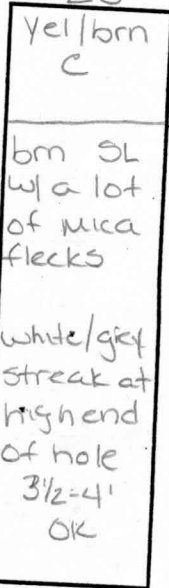 Yel/brn
C
brn SL
w/ a lot
of mica
flecks
white/grey
streak at
high end
of hole
3 1/2=4'
OK